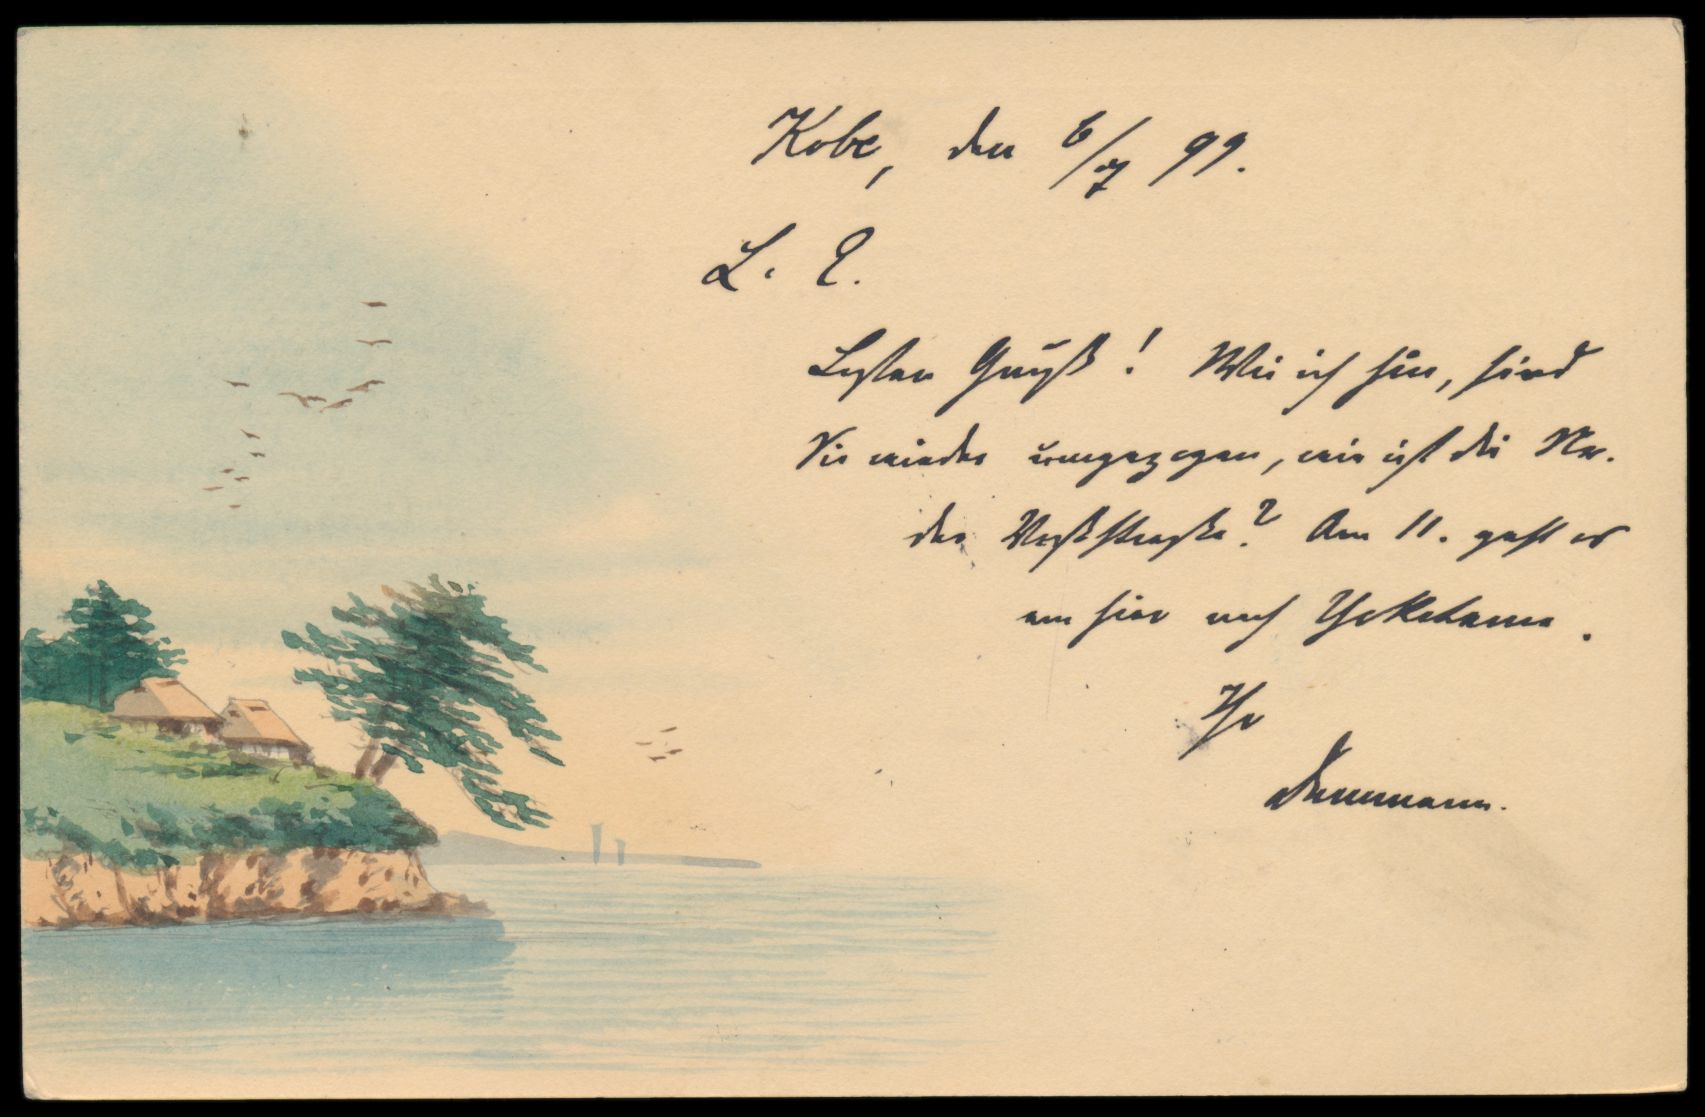 Kobe, den 6/7 99.
L. E.
Besten Gruß! Wie ich höre, sind
Sie wieder umgezogen, wie ist die No.
der Poststraße? Am 11. geht es
von hier nach Yokohama.
Ihr